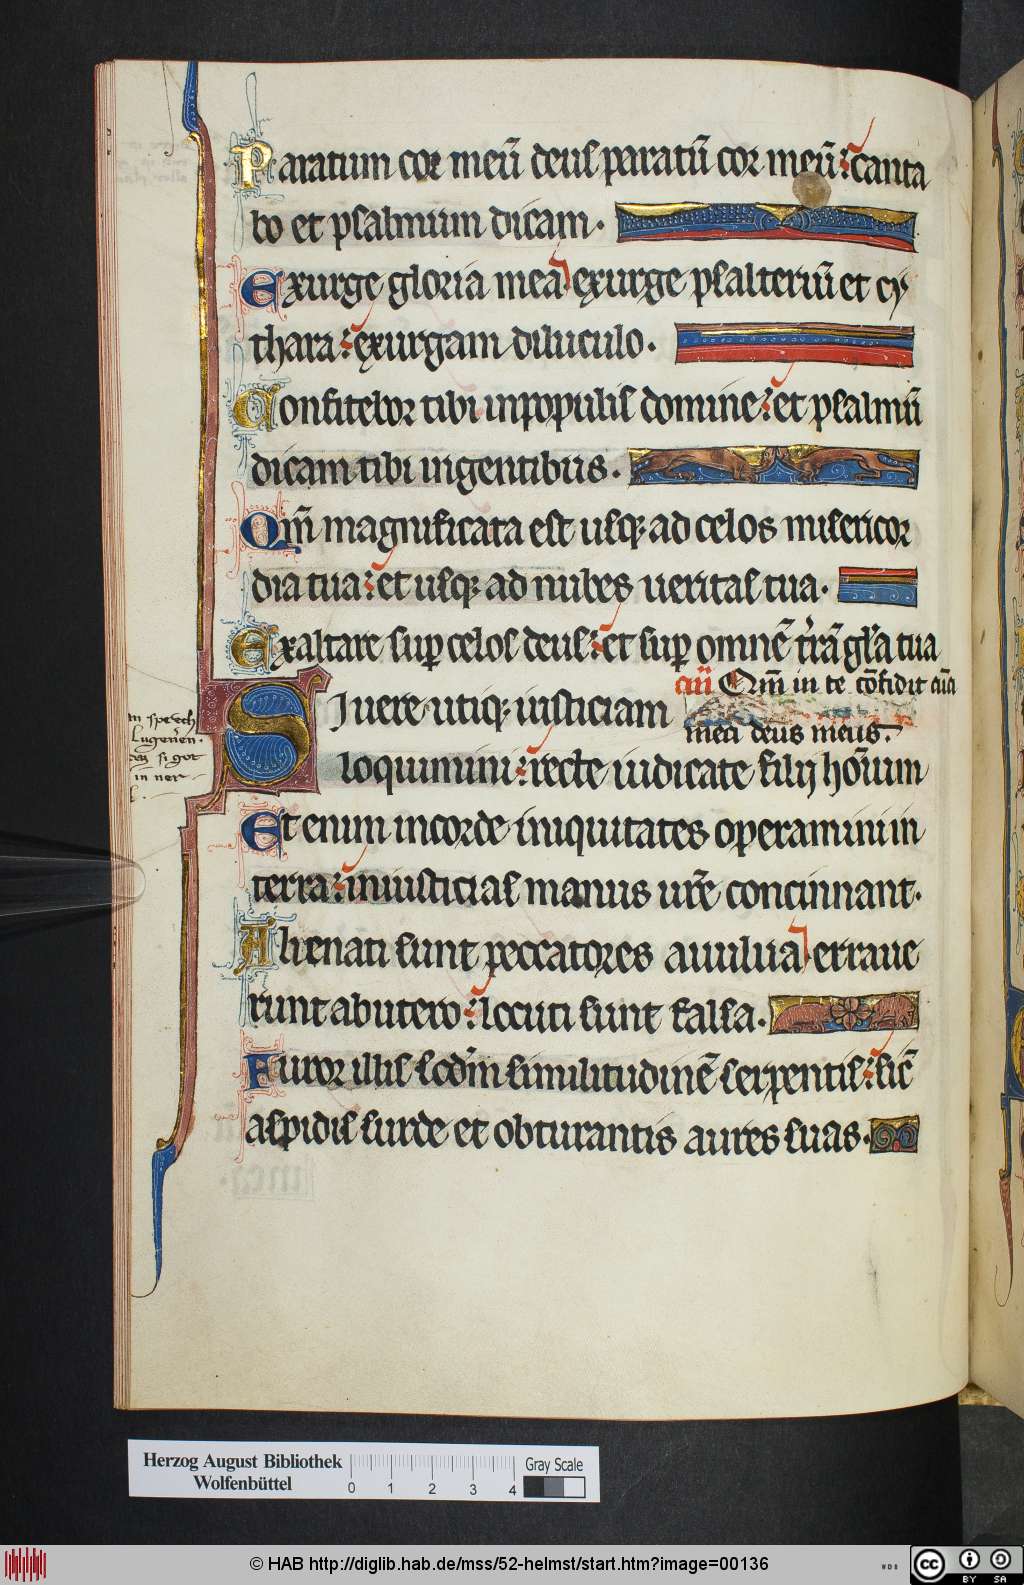 Paratum cor meū deus paratū cor meū: canta
bo et psalmum dicam.
Exurge gloria mea exurge psalteriū et cy
thara: exurgam diluculo.
Confitebor tibi in populis domine: et psalmū
dicam tibi in gentibus.
Qm̄ magnificata est usq; ad celos misericor
dia tua: et usq; ad nubes ueritas tua.
Exaltare sup celos deus: et sup omnē t'rā gl'a tua
an̄ Qm̄ in te cōfidit aīa
Si uere utiq; iusticiam
mea deus meus.
loquimini: recte iudicate filij hoīum
Et enim in corde iniquitates operamini in
terra: iniusticias manus ur̄e concinnant.
Alienati sunt peccatores a uulua erraue
runt ab utero: locuti sunt falsa.
Furor illis scd'm similitudinē serpentis: sic̄
aspidis surde et obturantis aures suas.
Herzog August Bibliothek
Wolfenbüttel
0 1 2 3 4
Gray Scale
© HAB http://diglib.hab.de/mss/52-helmst/start.htm?image=00136
WDB
cc BY SA